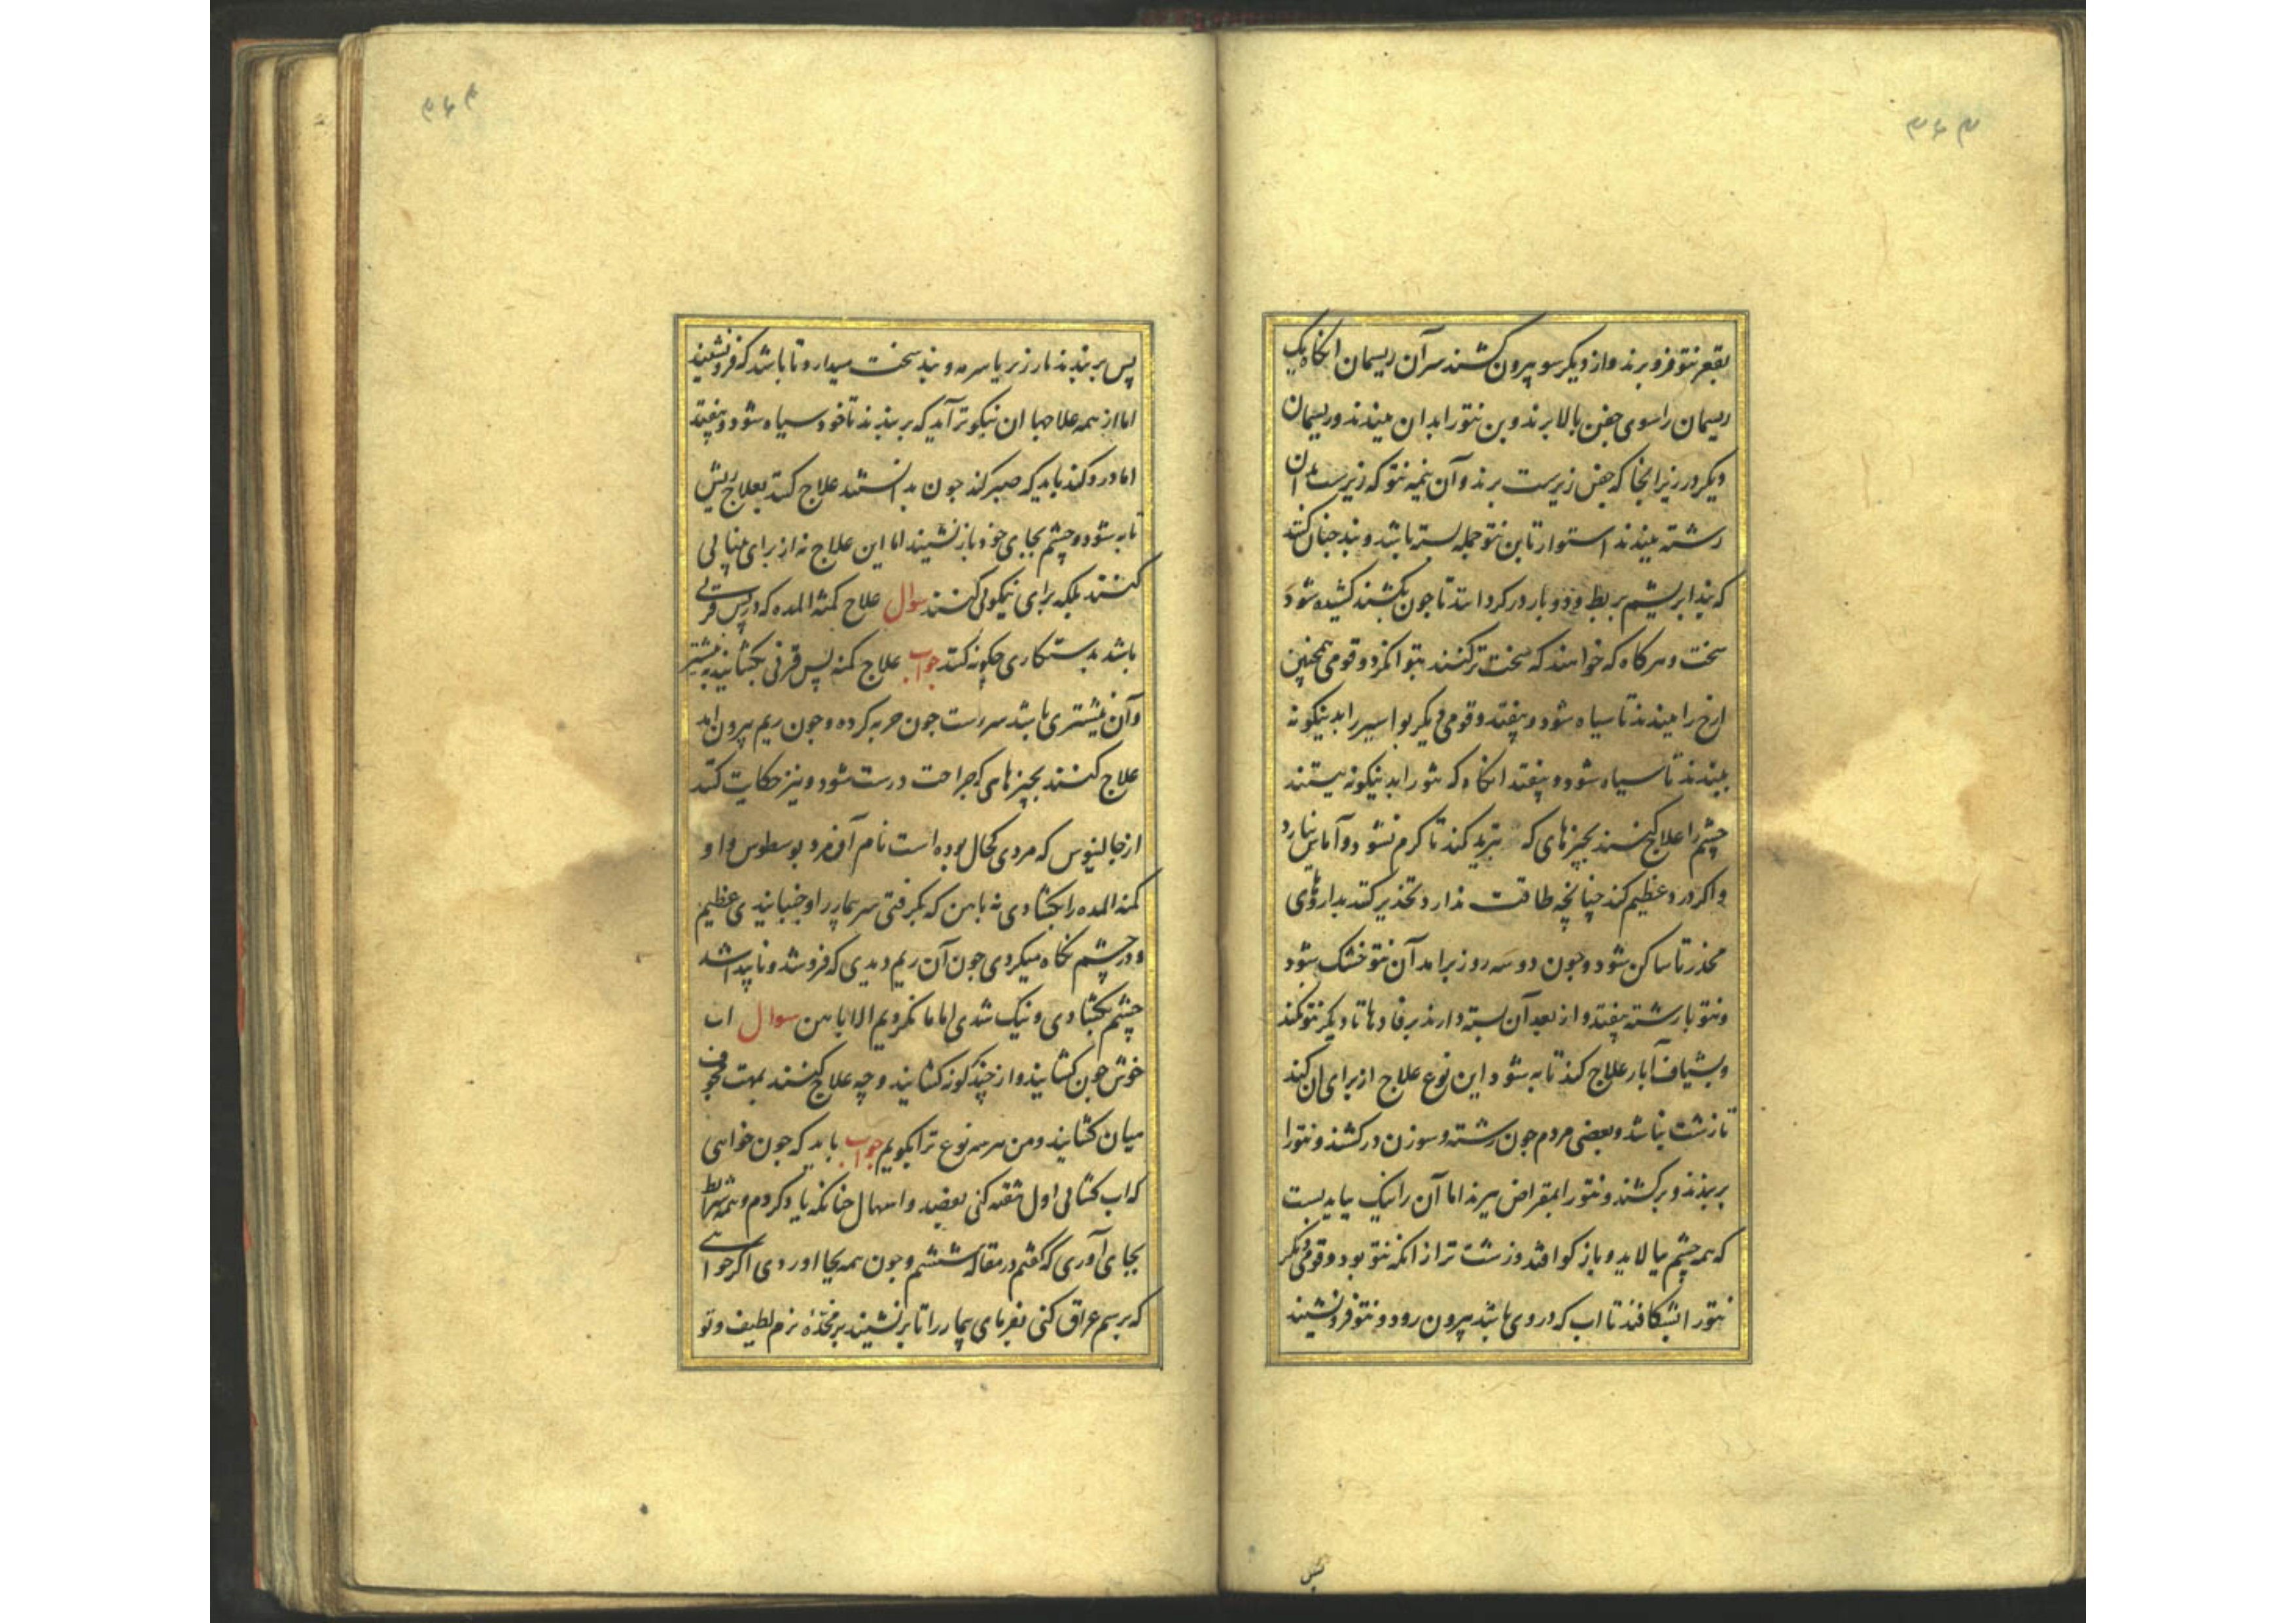 ۳۶۳
بقعر نتو فرو برند و از دیکر سو بیرون کشند سر آن ریسمان انکاه یک
ریسمان را سوی جفن بالا برند و بن نتو را بدان ببندند و ریسمان
دیکر در زیر انجا که جفن زیرست برند و آن نیمه نتو که زیرست بدان
رشته ببندند استوار تا بن نتو جمله بسته باشد و بند جنان کنند
که بند ابریشم بربط و دو بار در کردانند تا جون بکشند کشیده شود
سخت و هرکاه که خواهند که سخت تر کنند بتوانکرد و قومی همچنین
ارخ را ببندند تا سیاه شود و بیفتد و قومی دیکر بواسیر را بدینکونه
ببندند تا سیاه شود و بیفتد انکاه که نتو را بدینکونه ببستند
چشم را علاج کنند بجیزهای که تبرید کند تا کرم نشود و آماس نیارد
و اکر درد عظیم کند چنانچه طاقت ندارد تخذیر کنند بداروهای
مخذر تا ساکن شود و جون دو سه روز برامد آن نتو خشک شود
و نتو با رشته بیفتد و از بعد آن بسته دارند برفادها تا دیکر نتو نکند
و بشیاف آبار علاج کند تا به شود این نوع علاج از برای ان کنند
تا زشت نباشد و بعضی مردم جون رشته و سوزن در کشند و نتو را
بربندند و برکشند و نتو را بمقراض ببرند اما آن را نیک نباید بست
که همه چشم بیالاید و باز کو افتد و زشت تر از انکه نتو بود و قومی دیکر
نتو را بشکافند تا اب که در وی باشد بیرون رود و نتو فرو نشیند
پس
۳۶۴
پس بربندند بارزیز یا سرمه و بند سخت میدارد تا باشد که فرو نشیند
اما از همه علاجها ان نیکوتر آید که بربندند تا خود سیاه شود و بیفتد
اما درد کند باید که صبر کند جون بدانستند علاج کنند بعلاج ریش
تا به شود و چشم بجای خود باز نشیند اما این علاج نه از برای بینایی
کنند بلکه برای نیکویی کنند سوال علاج کمنة المده که در پس قرنی
باشد بدستکاری چکونه کنند جواب علاج کمنه پس قرنی بکشانیدن بنیشتر
و آن نیشتری باشد سر رست جون حربه کرده و جون ریم بیرون اید
علاج کنند بچیزهای که جراحت درست شود و نیز حکایت کنند
از جالینوس که مردی کحال بوده است نام آن مرد بوسطوس و او
کمنة المده را بکشادی نه باهن که بکرفتی سر بیمار را و جنبانیدی عظیم
و در چشم نکاه میکردی جون آن ریم دیدی که فرو شد و ناپیدا شد
چشم بکشادی و نیک شدی اما ما نکردیم الا باهن سوال اب
خوش جون کشایند و از چند کونه کشایند و چه علاج کنند بمهت مجوف
میان کشایند و من هر سه نوع ترا بکویم جواب باید که جون خواهی
که اب کشائی اول تنقیه کنی بفصد و اسهال جنانکه یاد کردم و همه شرایط
بجای آوری که کفتم در مقاله ششم و جون همه بجا اوردی اکر خواهی
که برسم عراق کنی بفرمای بیمار را تا برنشیند بر مخده نرم لطیف و تو